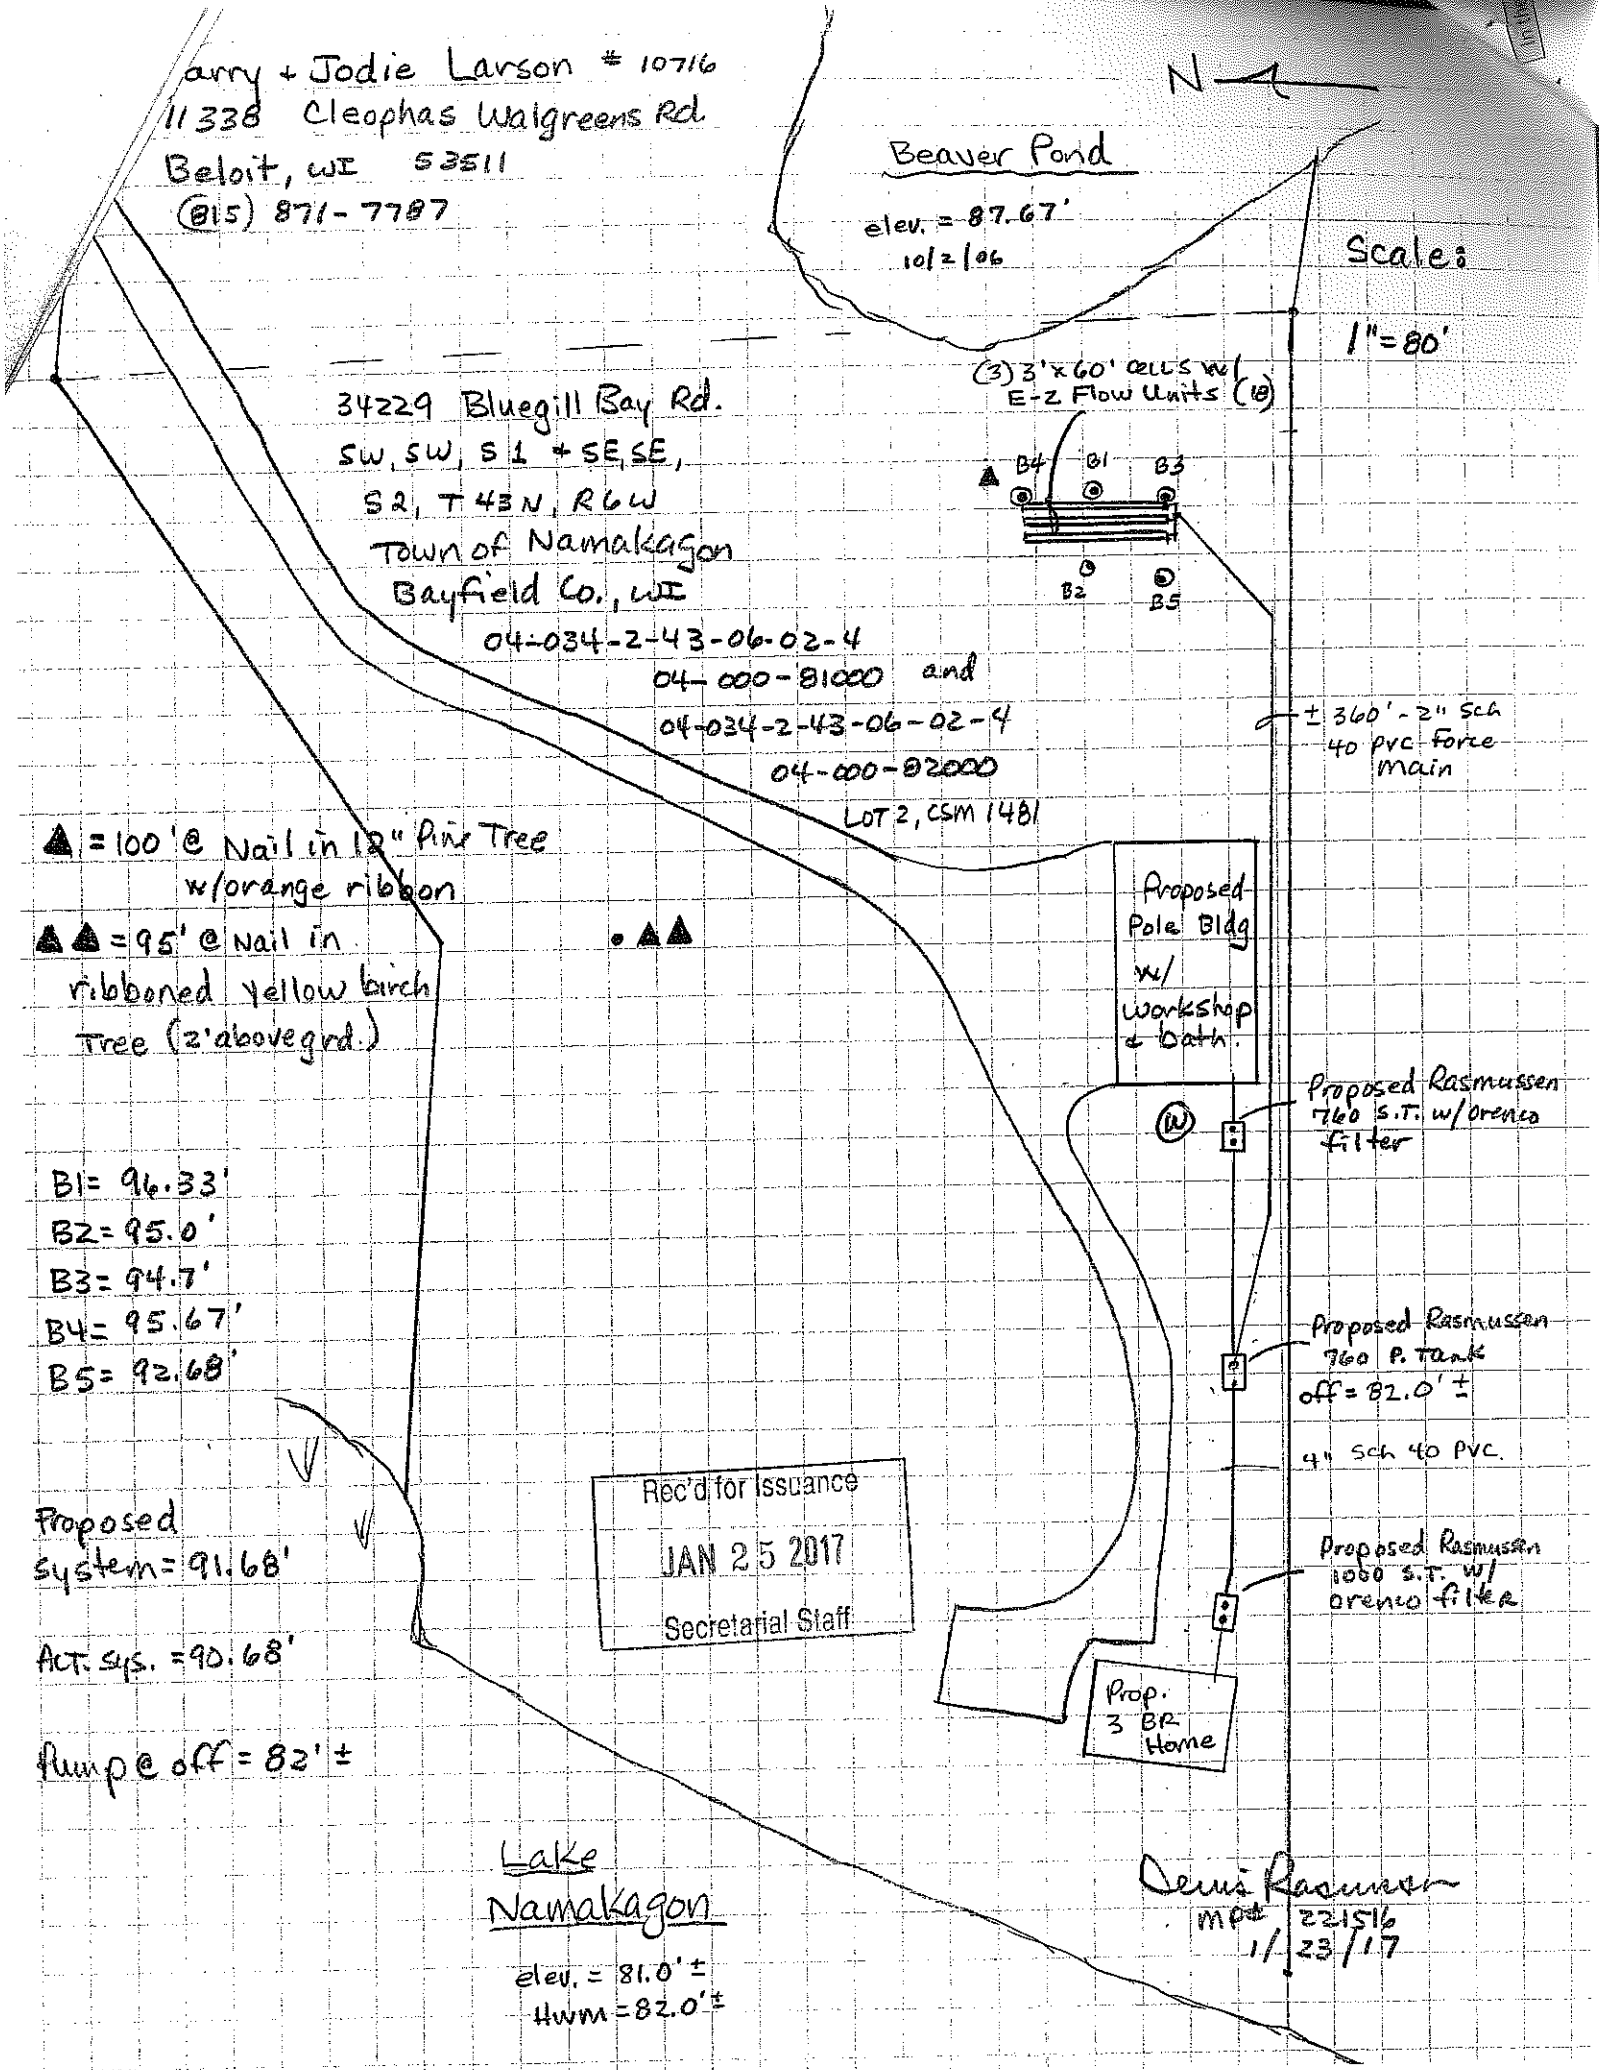 arry + Jodie Larson # 10716
11338 Cleophas Walgreens Rd.
Beloit, WI 53511
(815) 871-7787
N
Beaver Pond
elev. = 87.67'
10/2/06
Scale:
1"=80'
(3) 3'x60' cells w/
E-Z Flow Units (18)
34229 Bluegill Bay Rd.
SW, SW, S1 + SE, SE,
S2, T43N, R6W
Town of Namakagon
Bayfield Co., WI
04-034-2-43-06-02-4
04-000-81000 and
04-034-2-43-06-02-4
04-000-82000
LOT 2, CSM 1481
▲ B4 B1 B3
B2 B5
± 360' - 2" Sch
40 PVC Force
main
▲ = 100' @ Nail in 12" Pine Tree
w/orange ribbon
▲▲ = 95' @ Nail in
ribboned yellow birch
Tree (2' above grd.)
• ▲▲
Proposed
Pole Bldg
w/
workshop
& bath.
W
Proposed Rasmussen
760 S.T. w/ orenco
filter
B1= 96.33'
B2= 95.0'
B3= 94.7'
B4= 95.67'
B5= 92.68'
Proposed Rasmussen
760 P. Tank
off = 82.0' ±
4" Sch 40 PVC.
Rec'd for Issuance
JAN 25 2017
Secretarial Staff
Proposed
system= 91.68'
Act. sys. = 90.68'
Pump @ off = 82' ±
Proposed Rasmussen
1000 S.T. w/
orenco filter
Prop.
3 BR
Home
Lake
Namakagon
elev. = 81.0' ±
HWM = 82.0' ±
MP# 221516
1/23/17